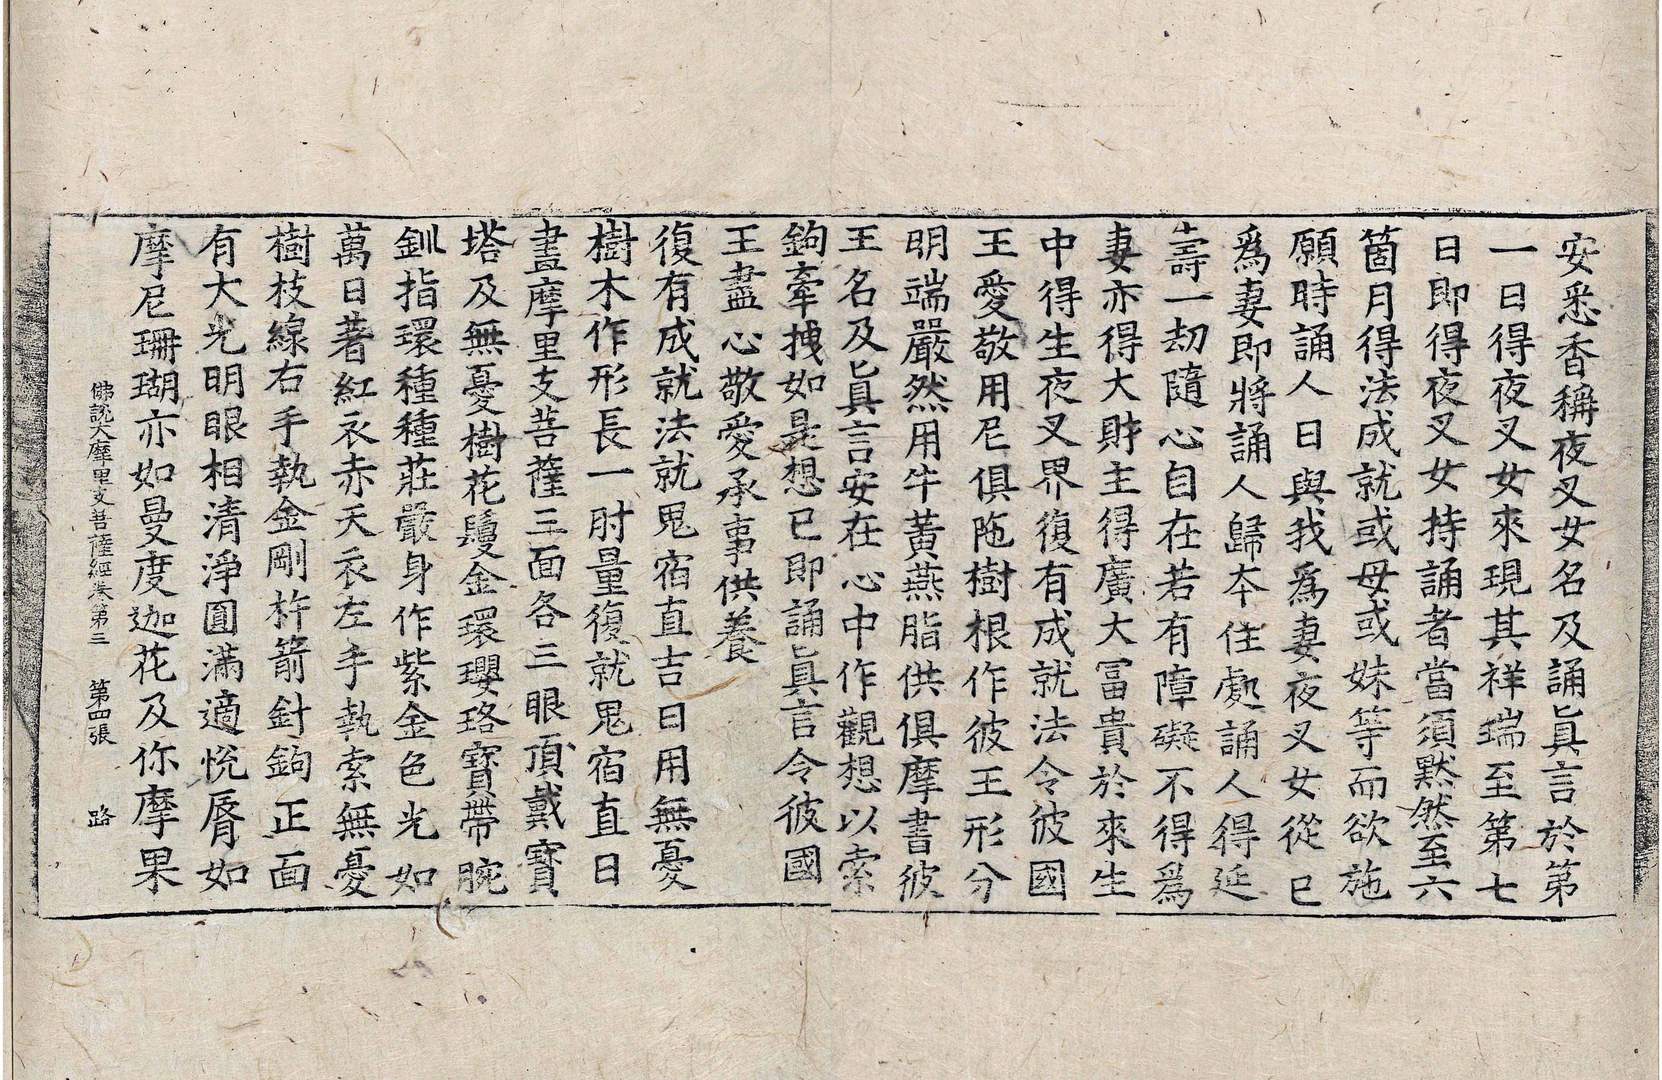 安悉香稱夜叉女名及誦眞言於第
一日得夜叉女來現其祥瑞至第七
日即得夜叉女持誦者當須默然至六
箇月得法成就或母或妹等而欲施
願時誦人曰與我爲妻夜叉女從已
爲妻即將誦人歸本住處誦人得延
壽一劫隨心自在若有障礙不得爲
妻亦得大財主得廣大冨貴於來生
中得生夜叉界復有成就法令彼國
王愛敬用尼俱陁樹根作彼王形分
明端嚴然用牛黃燕脂供俱摩書彼
王名及眞言安在心中作觀想以索
鉤牽拽如是想已即誦眞言令彼國
王盡心敬愛承事供養
復有成就法就鬼宿直吉日用無憂
樹木作形長一肘量復就鬼宿直日
畫摩里支菩薩三面各三眼頂戴寶
塔及無憂樹花鬘金環瓔珞寶帶腕
釧指環種種莊嚴身作紫金色光如
萬日著紅衣赤天衣左手執索無憂
樹枝線右手執金剛杵箭針鉤正面
有大光明眼相清淨圓滿適悅脣如
摩尼珊瑚亦如曼度迦花及你摩果
佛說大摩里支菩薩經卷第三 第四張 路